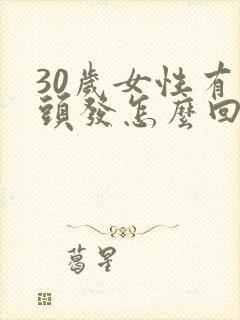 30歲女性有
頭發怎麼回
葛星